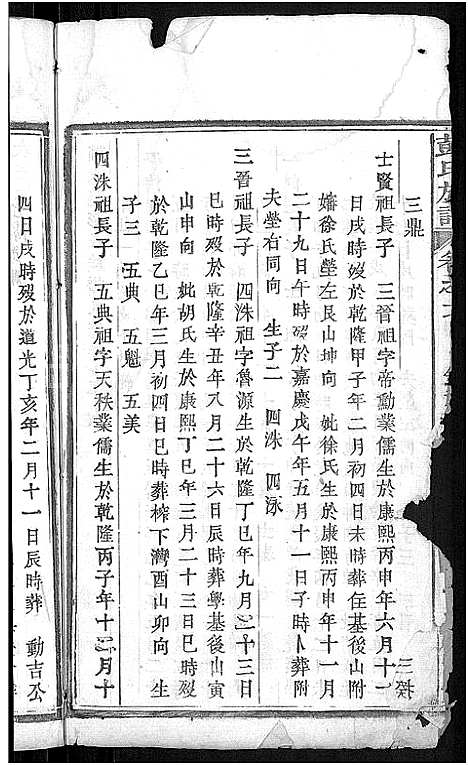 彭氏族譜
三鼎
士賢祖長子 三晉祖字帝勳業儒生於康熙丙申年六月十一
日戌時歿於乾隆甲子年二月初四日未時葬住基後山附
嬸徐氏塋左艮山坤向 妣徐氏生於康熙丙申年十一月
二十九日午時歿於嘉慶戊午年五月十一日子時卜葬附
夫塋右同向 生子二 四洙 四泳
三晉祖長子 四洙祖字魯源生於乾隆丁巳年九月二十三日
巳時歿於乾隆辛丑年八月二十六日辰時葬學基後山寅
山申向 妣胡氏生於康熙丁巳年三月二十三日巳時歿
於乾隆乙巳年三月初四日巳時葬榨下灣酉山卯向 生
子三 五典 五魁 五美
四洙祖長子 五典祖字天秩業儒生於乾隆丙子年十二月十
四日戌時歿於道光丁亥年二月十一日辰時葬 勳吉公